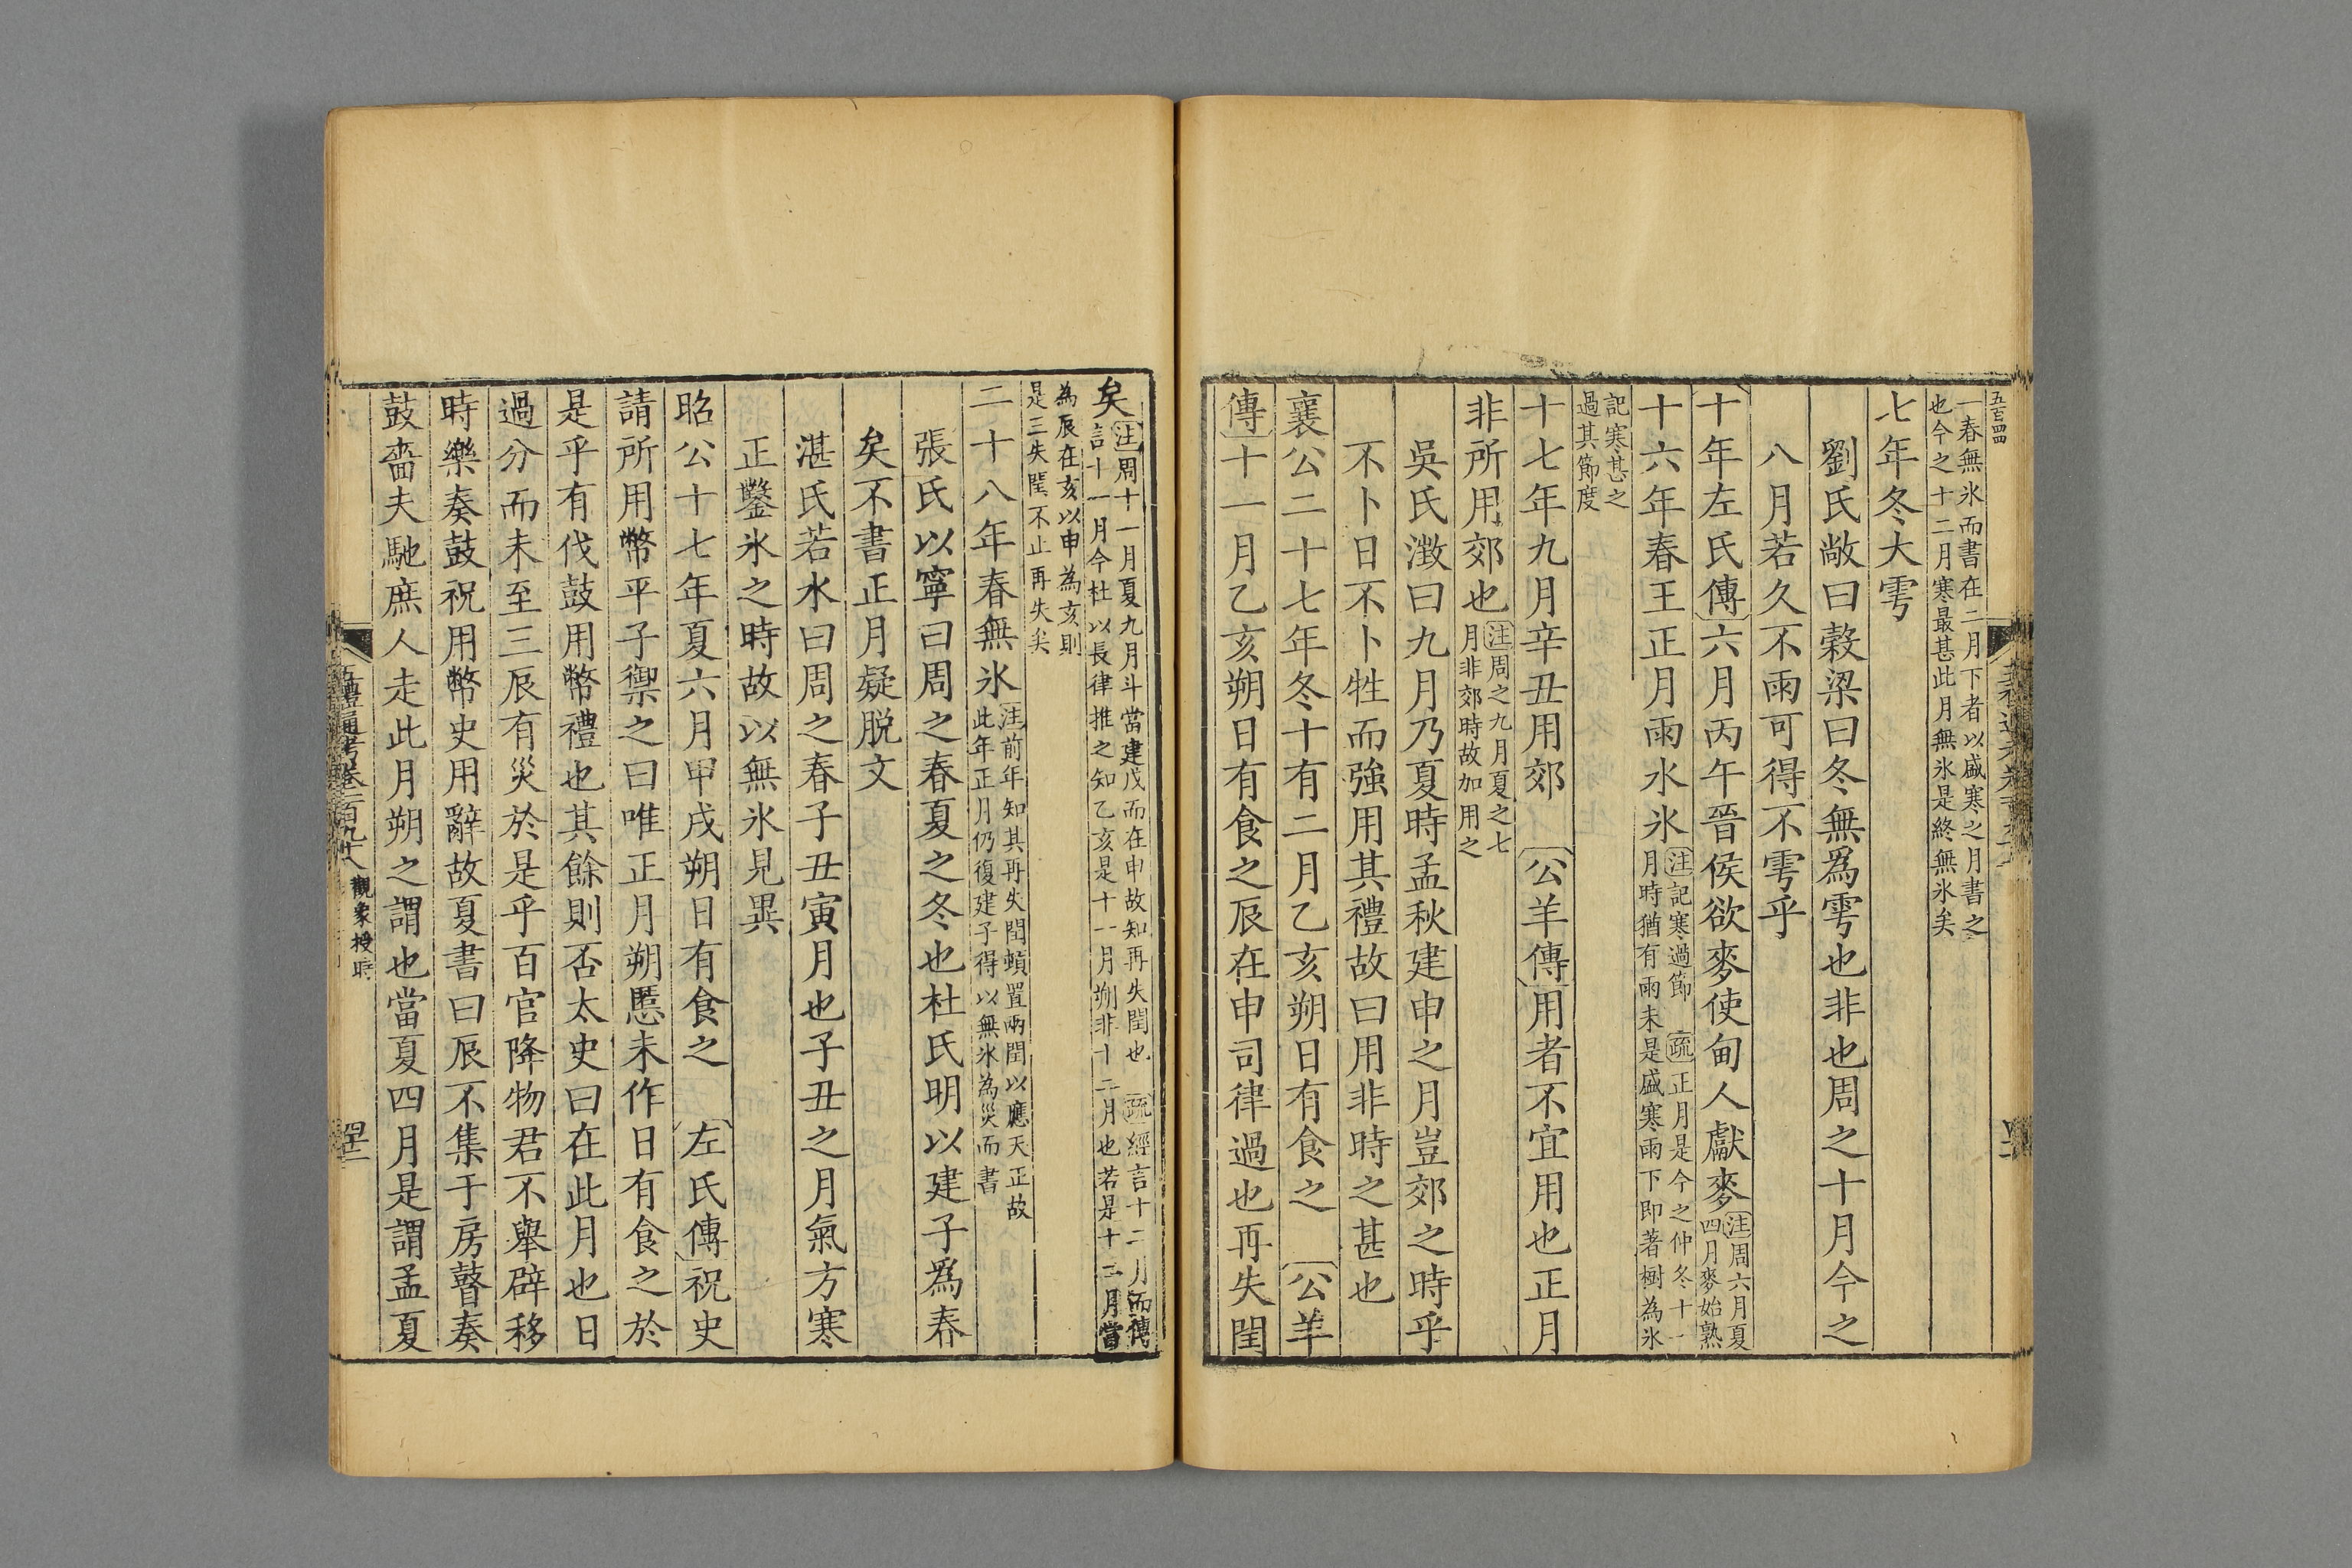 五百四
一春無氷而書在二月下者以盛寒之月書之
也今之十二月寒最甚此月無氷是終無氷矣
七年冬大雩
劉氏敞曰穀梁曰冬無爲雩也非也周之十月今之
八月若久不雨可得不雩乎
十年左氏傳六月丙午晉侯欲麥使甸人獻麥注周六月夏
四月麥始熟
十六年春王正月雨水氷注記寒過節 疏正月是今之仲冬十一
月時猶有雨未是盛寒雨下即著樹為氷
記寒甚之
過其節度
十七年九月辛丑用郊 公羊傳用者不宜用也正月
非所用郊也注周之九月夏之七
月非郊時故加用之
吳氏澂曰九月乃夏時孟秋建申之月豈郊之時乎
不卜日不卜牲而強用其禮故曰用非時之甚也
襄公二十七年冬十有二月乙亥朔日有食之 公羊
傳十一月乙亥朔日有食之辰在申司律過也再失閏
矣注周十一月夏九月斗當建戌而在申故知再失閏也 疏經言十二月而傳
言十一月今杜以長律推之知乙亥是十一月朔非十二月也若是十二月當
為辰在亥以申為亥則
是三失閏不止再失矣
二十八年春無氷注前年知其再失閏頓置兩閏以應天正故
此年正月仍復建子得以無氷為災而書
張氏以寧曰周之春夏之冬也杜氏明以建子爲春
矣不書正月疑脱文
湛氏若水曰周之春子丑寅月也子丑之月氣方寒
正鑿氷之時故以無氷見異
昭公十七年夏六月甲戌朔日有食之 左氏傳祝史
請所用幣平子禦之曰唯正月朔慝未作日有食之於
是乎有伐鼓用幣禮也其餘則否太史曰在此月也日
過分而未至三辰有災於是乎百官降物君不舉辟移
時樂奏鼓祝用幣史用辭故夏書曰辰不集于房瞽奏
鼓嗇夫馳庶人走此月朔之謂也當夏四月是謂孟夏
五禮通考卷一百九十八 觀象授時